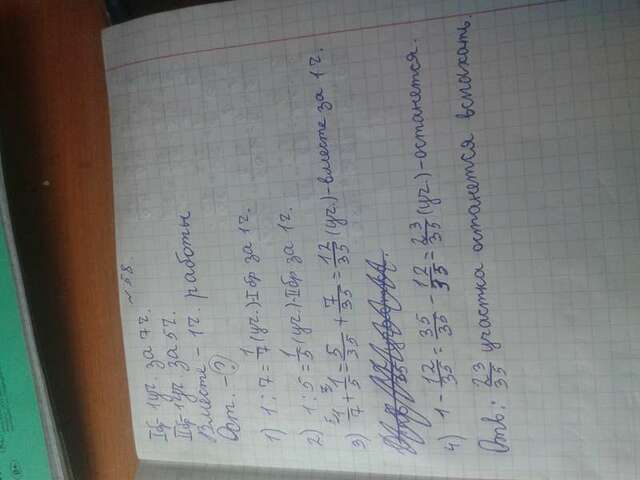 №58.
Iбр-1уч. за 7ч.
IIбр-1уч за 5ч.
Вместе - 1ч. работы
Ост. - ?
1) 1:7=1/7(уч.)-Iбр за 1ч.
2) 1:5=1/5(уч.)-IIбр за 1ч.
3) 1/7+1/5=5/35+7/35=12/35(уч.)-вместе за 1ч.
4) 1-12/35=35/35-12/35=23/35(уч.)-останется.
Отв.: 23/35 участка останется вспахать.